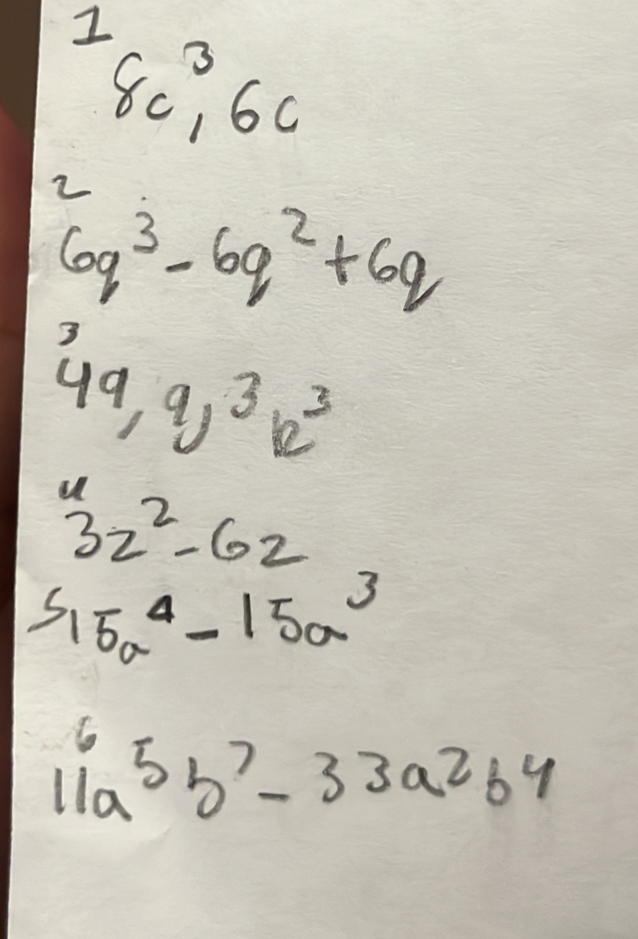 1
8c³, 6c
2
6q³ - 6q² + 6q
3
49, 9, ³k³
4
3z² - 6z
5 15a⁴ - 15a³
6
11a⁵b⁷ - 33a²b4